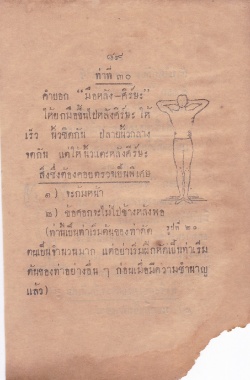 ๗๙
ท่าที่ ๓๐
คำบอก “มือหลัง–ศีร์ษะ”
ให้ยกมือขึ้นไปหลังศีร์ษะ ให้
เร็ว นิ้วชิดกัน ปลายนิ้วกลาง
จดกัน แต่ให้นิ้วแตะหลังศีร์ษะ
สิ่งซึ่งต้องคอยตรวจเป็นพิเศษ
๑) จะก้มหน้า
๒) ข้อศอกจะไม่ไปข้างหลังพอ
(ท่านี้เป็นท่าเริ่มต้นของท่าดัด
รูปที่ ๒๐
ตนเป็นจำนวนมาก แต่อย่าเริ่มฝึกหัดเป็นท่าเริ่ม
ต้นของท่าอย่างอื่น ๆ ก่อนเมื่อมีความชำนาญ
แล้ว)